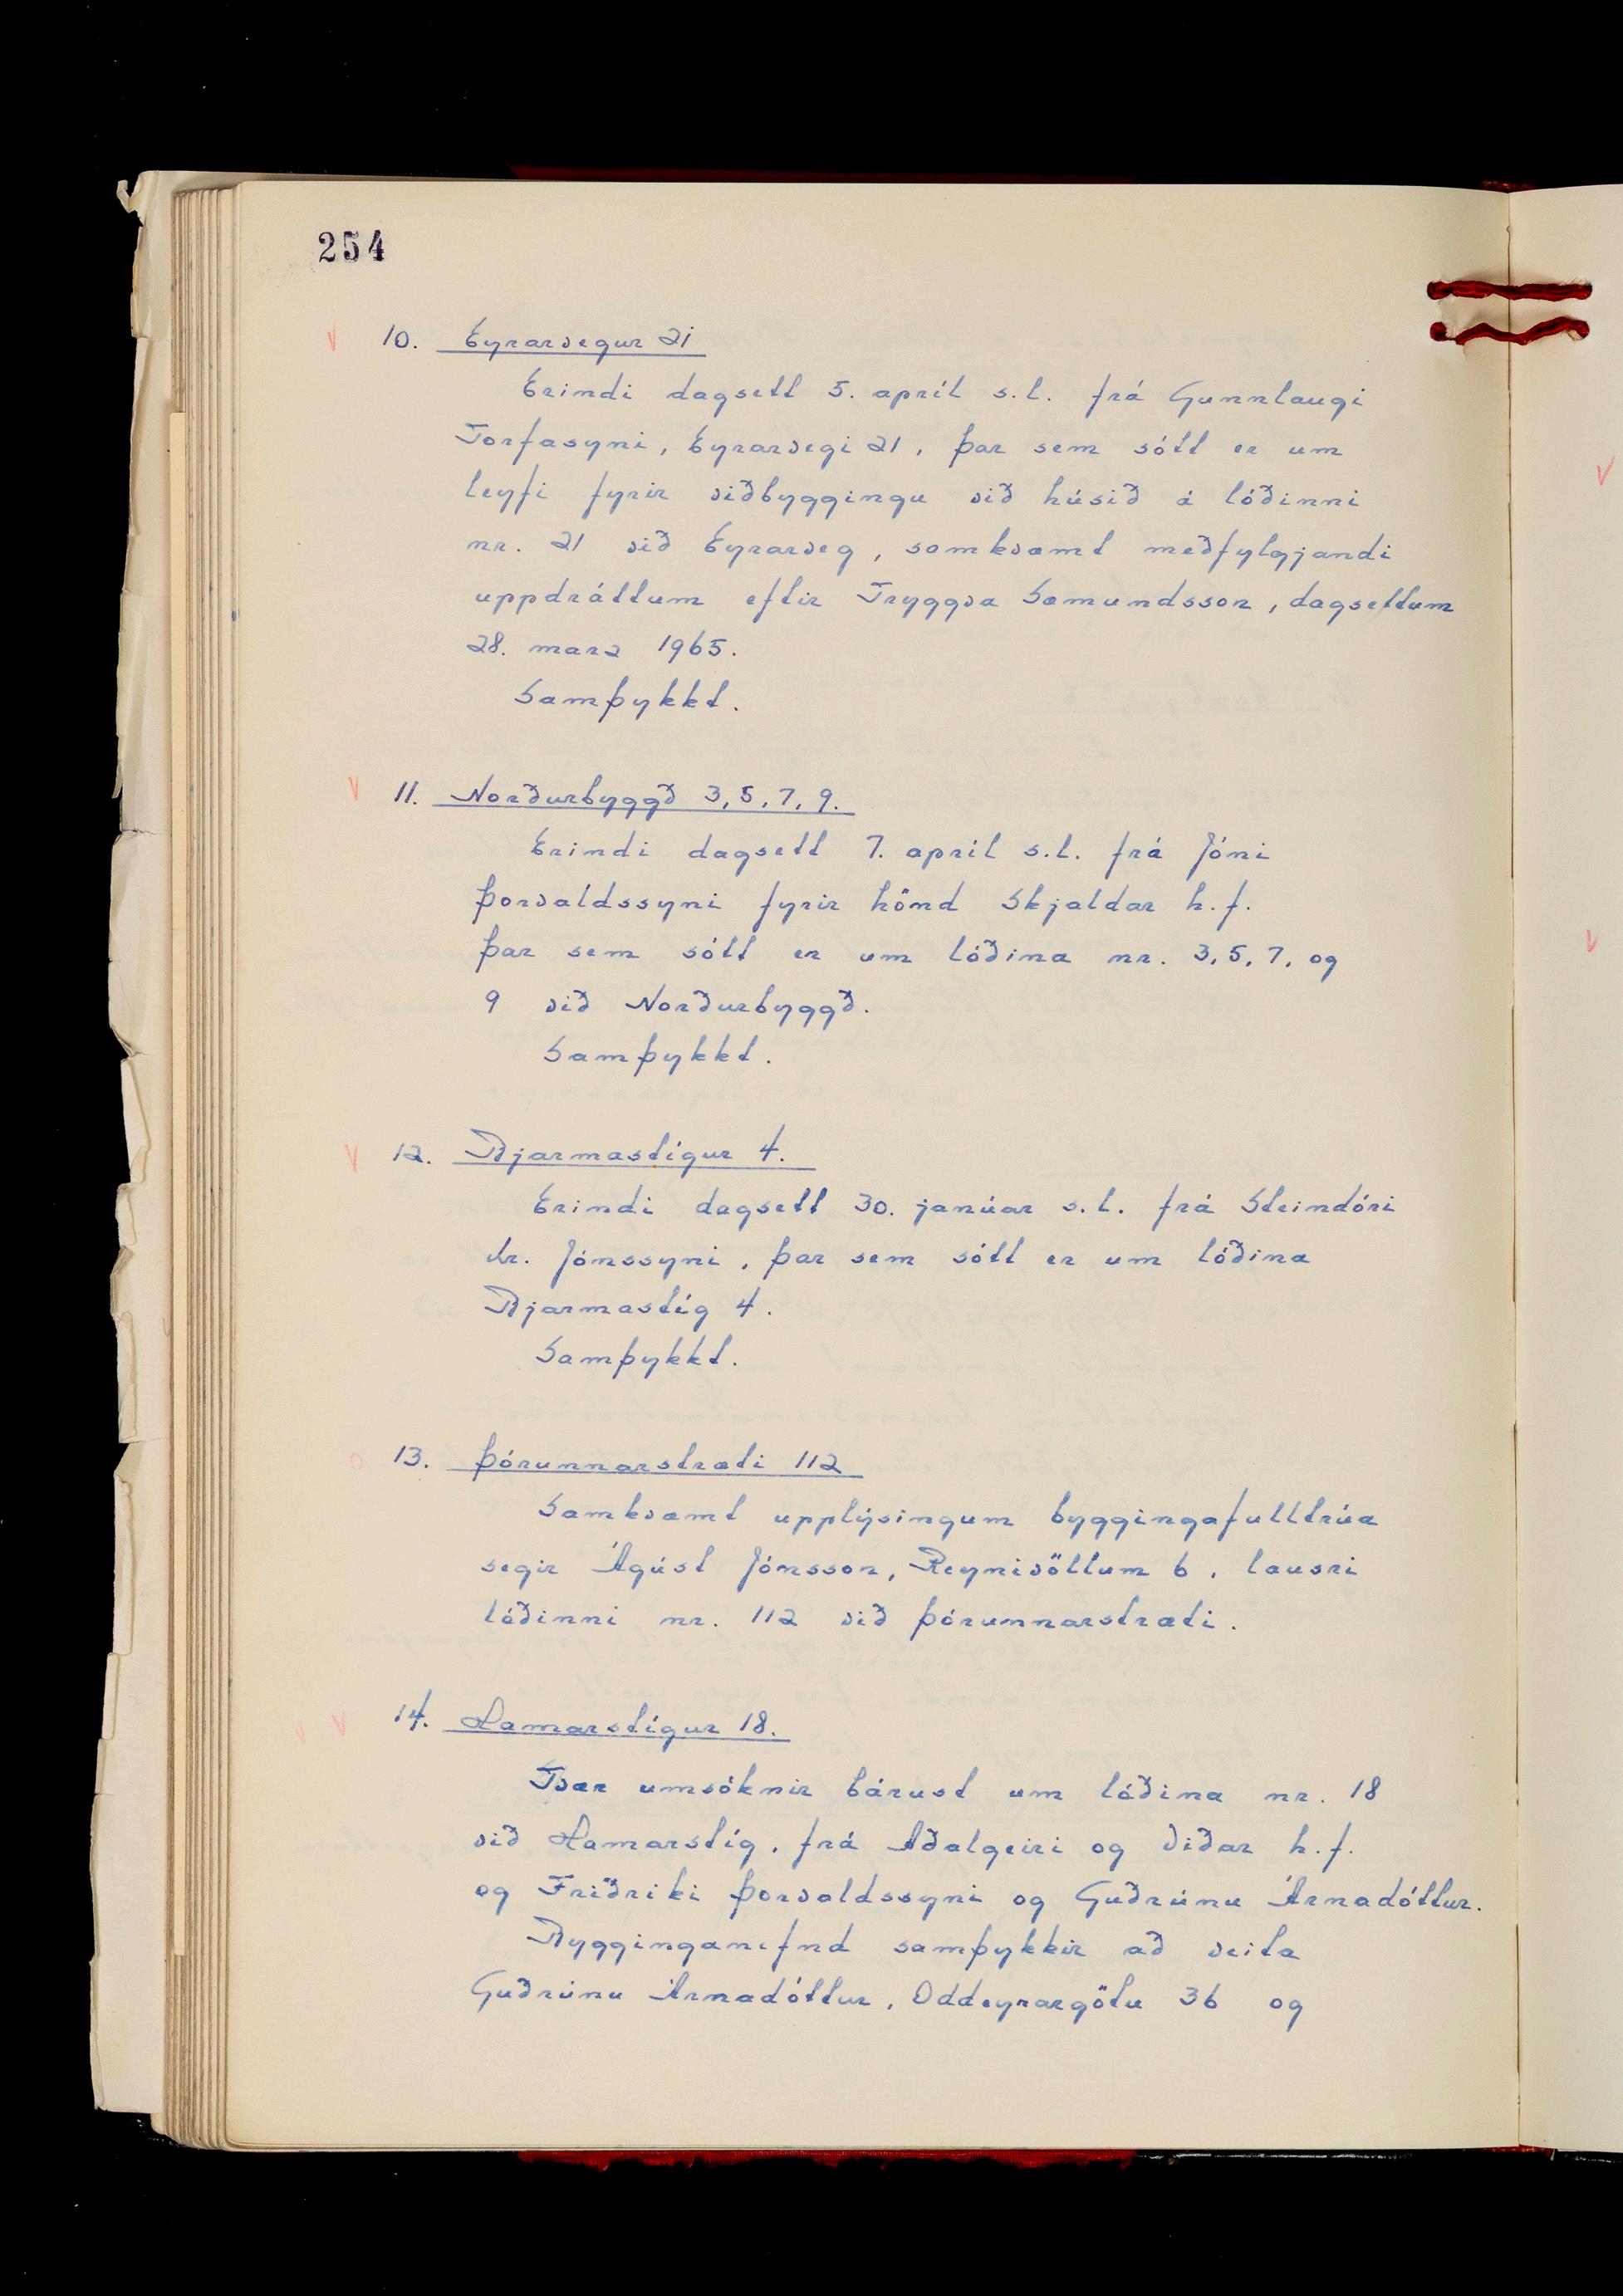 254
10. Eyrarvegur 21
Erindi dagsett 5. apríl s.l. frá Gunnlaugi
Torfasyni, Eyrarvegi 21, þar sem sótt er um
leyfi fyrir viðbyggingu við húsið á lóðinni
nr. 21 við Eyrarveg, samkvæmt meðfylgjandi
uppdráttum eftir Tryggva Sæmundsson, dagsettum
28. marz 1965.
Samþykkt.
11. Norðurbyggð 3, 5, 7, 9.
Erindi dagsett 7. apríl s.l. frá Jóni
Þorvaldssyni fyrir hönd Skjaldar h.f.
þar sem sótt er um lóðina nr. 3, 5, 7, og
9 við Norðurbyggð.
Samþykkt.
12. Bjarmastígur 4.
Erindi dagsett 30. janúar s.l. frá Steindóri
Kr. Jónssyni, þar sem sótt er um lóðina
Bjarmastíg 4.
Samþykkt.
13. Þórunnarstræti 112
Samkvæmt upplýsingum byggingafulltrúa
segir Ágúst Jónsson, Reynivöllum 6, lausri
lóðinni nr. 112 við Þórunnarstræti.
14. Hamarstígur 18.
Tvær umsóknir bárust um lóðina nr. 18
við Hamarstíg, frá Aðalgeiri og Viðar h.f.
og Friðriki Þorvaldssyni og Guðrúnu Árnadóttur.
Bygginganefnd samþykkir að veita
Guðrúnu Árnadóttur, Oddeyrargötu 36 og